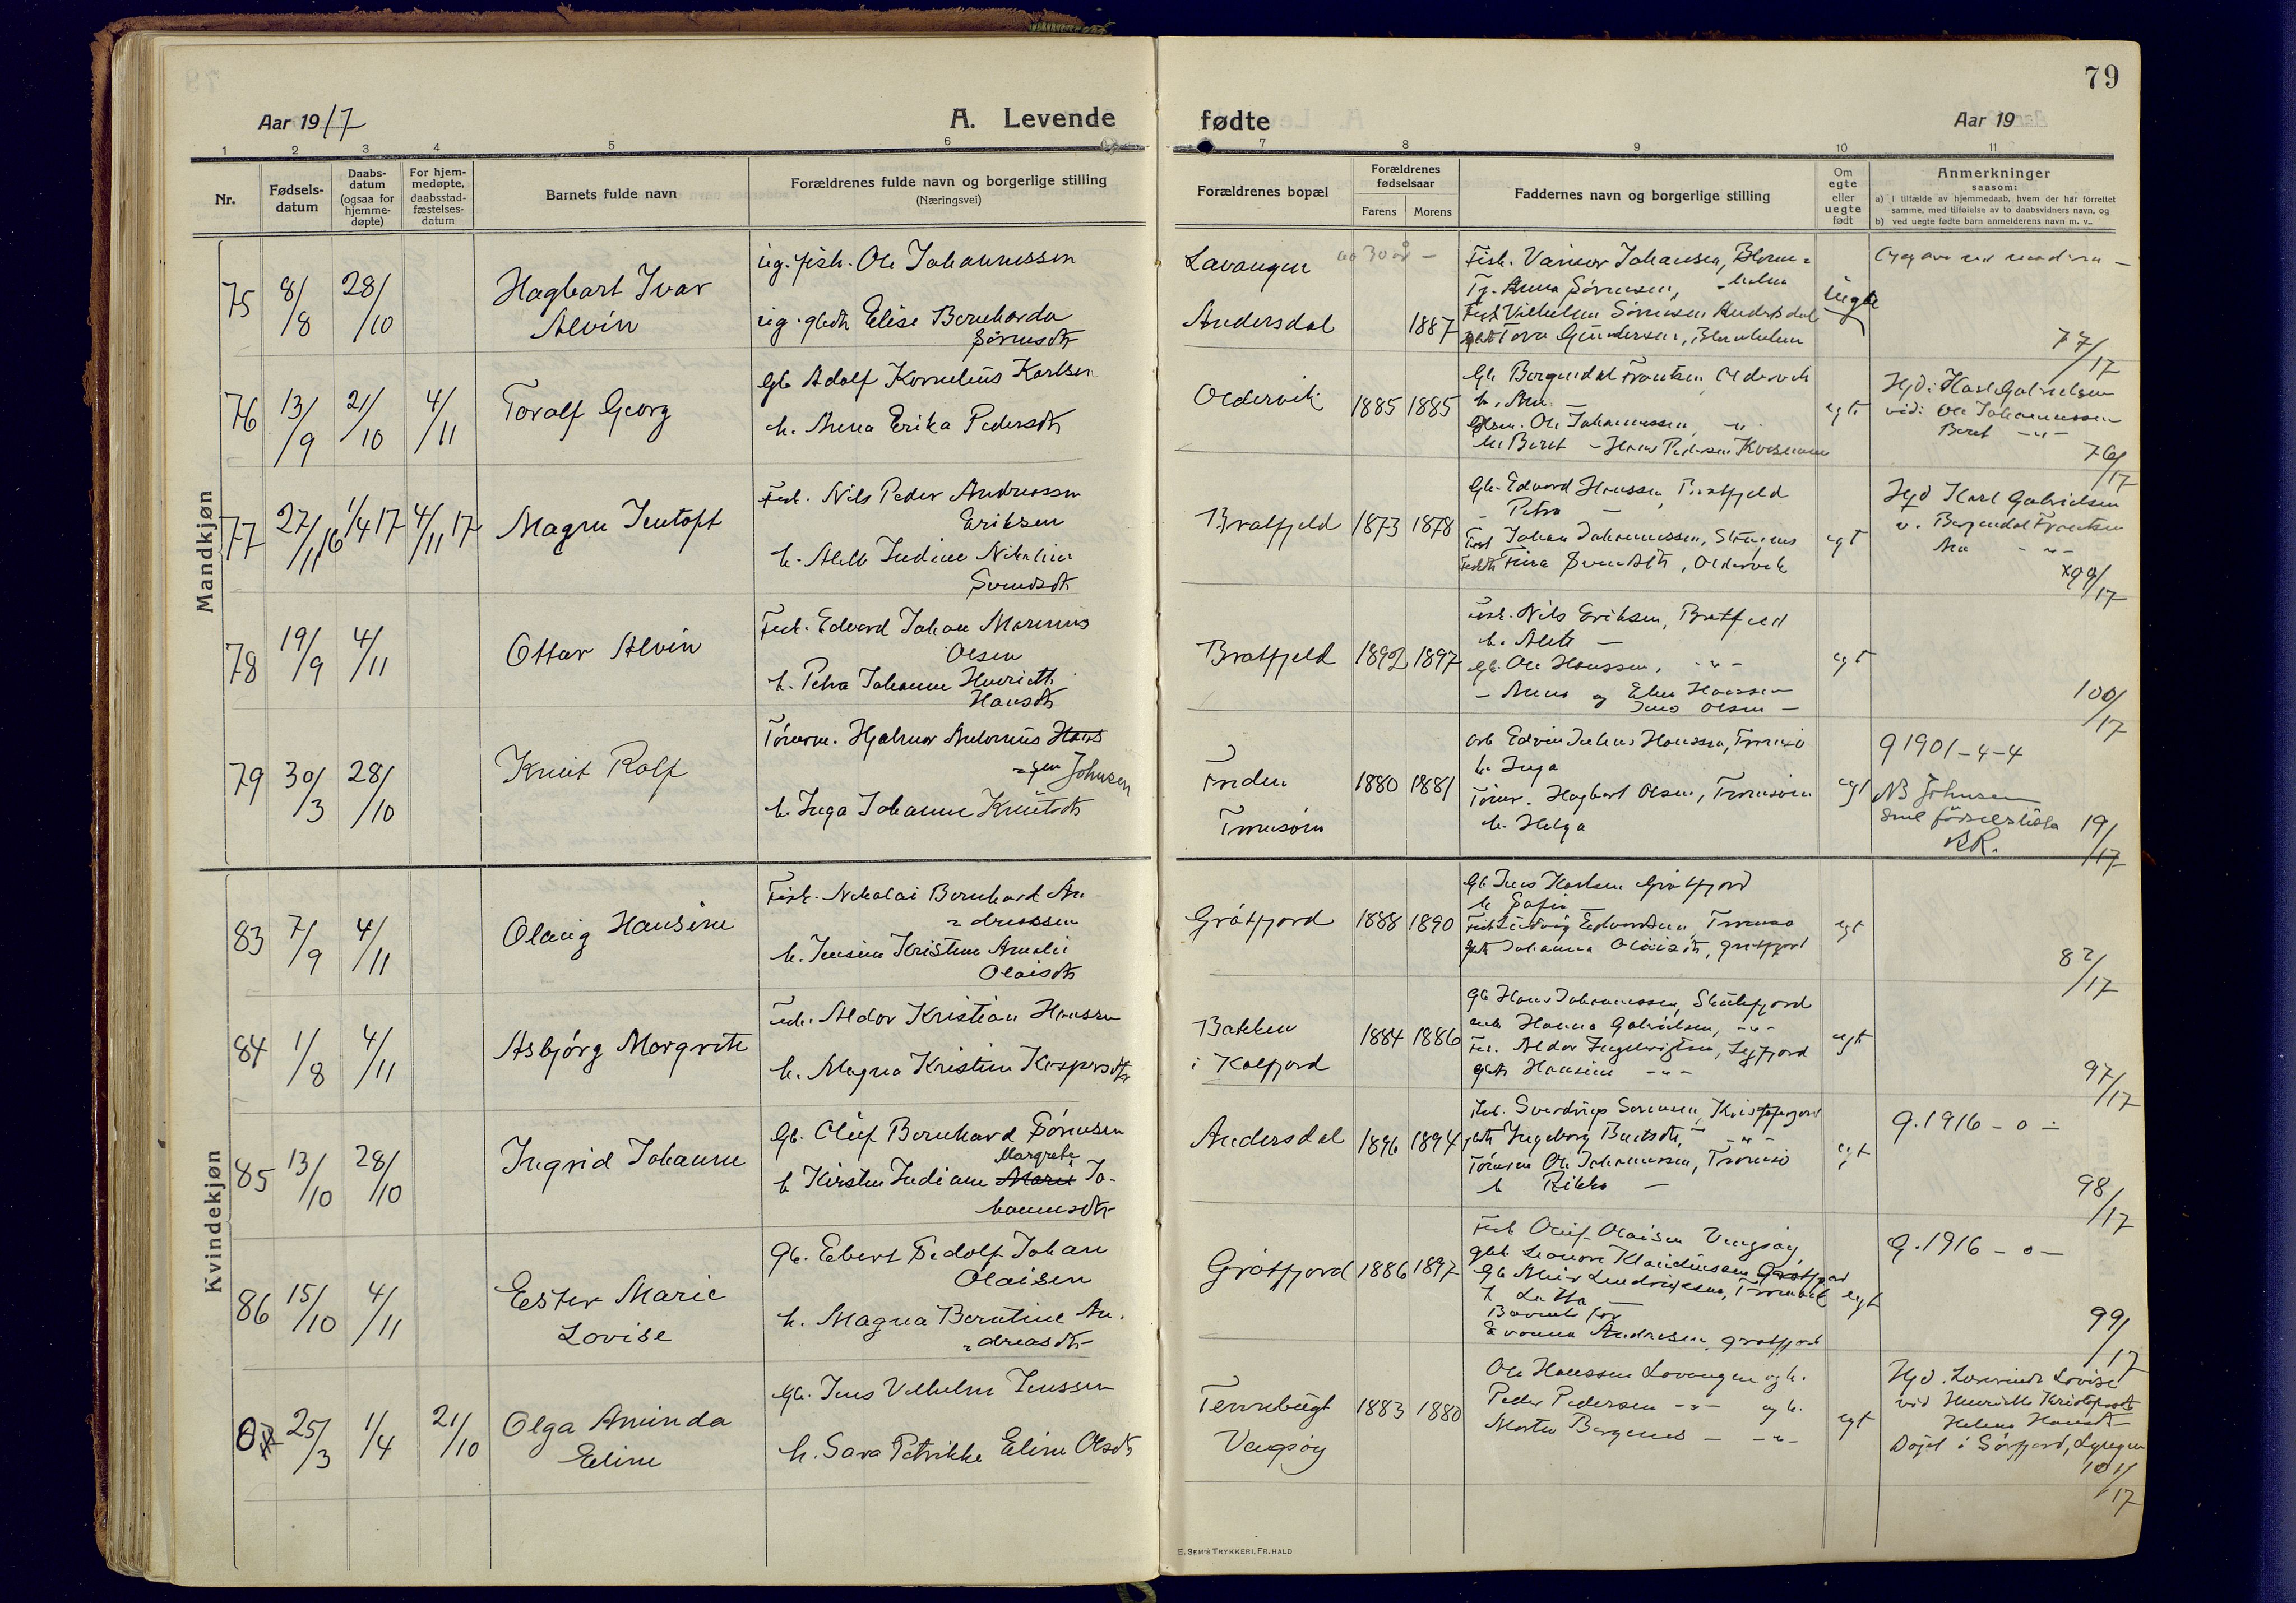 79
Aar 1917
A. Levende
fødte
Aar 19
1 2 3 4 5 6 7 8 9 10 11
Nr.
Fødsels-
datum
Daabs-
datum
(ogsaa for
hjemme-
døpte)
For hjem-
medøpte,
daabsstad-
fæstelses-
datum
Barnets fulde navn
Forældrenes fulde navn og borgerlige stilling
(Næringsvei)
Forældrenes bopæl
Forældrenes
fødselsaar
Farens
Morens
Faddernes navn og borgerlige stilling
Om
egte
eller
uegte
født
Anmerkninger
saasom:
a) i tilfælde av hjemmedaab, hvem der har forrettet
samme, med tilføielse av to daabsvidners navn, og
b) ved uegte fødte barn anmelderens navn m. v..
Mandkjøn
75
8/8
28/10
Hagbart Ivar
Alvin
ug. fisk. Ole Johannessen
ug. gbdtr Elise Bernharda
Sørensdtr
Lavangen
Andersdal
1887
Fisk. Johansen,
Anna Sørensen,
Fisk Vilhelm Sørensen Andersdal
Tora Gundersen,
uegte
77/17
76
13/9
21/10
4/11
Toralf Georg
Gb Adolf Kornelius Karlsen
h. Anna Erika Pedersdtr
Oldervik
1885
1885
Gb Bergendal Frantsen Oldervik
h. Ane
Ole Johannessen, -"-
h. Beret - Hans Pedersen
egte
Hjd: Karl Gabrielsen
vid: Ole Johannessen
Beret -"-
76/17
77
27/11 16
1/4 17
4/11 17
Magnu Jentoft
Fisk. Nils Peder Andreassen
Eriksen
h. Aleth Indine Nikoline
Svendsdtr
Bratfjeld
1873
1878
Gb. Edvard Hanssen, Bratfjeld
- Petra -
Fisk Johan Johannessen,
Fina Svendsdtr, Oldervik
egt
Hjd Karl Gabrielsen
v. Bergendal Frantsen
Ane -"-
x99/17
78
19/9
4/11
Ottar Alvin
Fisk. Edvard Johan Marenus
Olsen
h. Petra Johanne Henriette
Hansdtr
Bratfjeld
1892
1897
Fisk. Nils Eriksen, Bratfjeld
h. Aleth -
Gb. Ole Hanssen, -"-
- Anna og Elen Hanssen
Jens Olsen -
egt
100/17
79
30/3
28/10
Knut Rolf
Tømrm. Hjalmar Antonius Hans
sen Johnsen
h. Inga Johanne Knutsdtr
Friden
Tromsøen
1880
1881
Arb Edvin Julius Hanssen, Tromsø
h. Inga
Tømr. Hagbart Olsen, Tromsøen
h. Helga
egt
g 1901-4-4
NB Johnsen
fødselsliste
KR.
19/17
Kvindekjøn
83
7/9
4/11
Olaug Hansine
Fisk. Nikolai Bernhard An
dreassen
h. Jensine Kristine Amalie
Olaisdtr
Gråtfjord
1888
1890
Gb Jens Karlsen Gråtfjord
h Sofie -
Fisk Ludvig Edvardsen, Tromsø
Johanna Olaisdtr, Gråtfjord
egt
82/17
84
1/8
4/11
Asbjørg Margrete
Fisk. Aldor Kristian Hanssen
h. Magna Kristine Kaspersdtr
Bakken
i Kalfjord
1884
1886
Gb Hans Johannessen,
Hanna Gabrielsen, -"-
Fis. Aldor Ingebrigtsen,
Hansine -"-
egt
97/17
85
13/10
28/10
Ingrid Johanne
Gb. Oluf Bernhard Sørensen
Margrete
h Kirsten Indiane Marie Jo-
hannesdtr
Andersdal
1896
1894
Fisk. Sverdrup Sørensen,
Ingeborg -"-
Tømrm Ole Johannessen, Tromsø
h Rikka -
egt
g. 1916-0-
98/17
86
15/10
4/11
Ester Marie
Lovise
Gb. Ebert Sedolf Johan
Olaisen
h. Magna Berntine An.
dreasdtr
Gråtfjord
1886
1897
Fisk Oluf Olaisen Vengsøy
Leonore Klaudiussen Gråtfjord
Barnets far
Andresen, Gråtfjord
egt
g. 1916-0-
99/17
87
25/3
1/4
21/10
Olga Aminda
Eline
Gb. Jens Vilhelm Jenssen
h. Sara Petrikke Eline Olsdtr
Tennebugt
Vengsøy
1883
1880
Ole Hanssen Lavangen og h.
Peder Pedersen -"- og h.
Morten Bergenes - -"-
egt
Hjd. Lovise
vid Henrikke
Helena Hansdtr
Døpt i Sørfjord, Lyngen
101/17
E. SEM'S TRYKKERI, FR.HALD